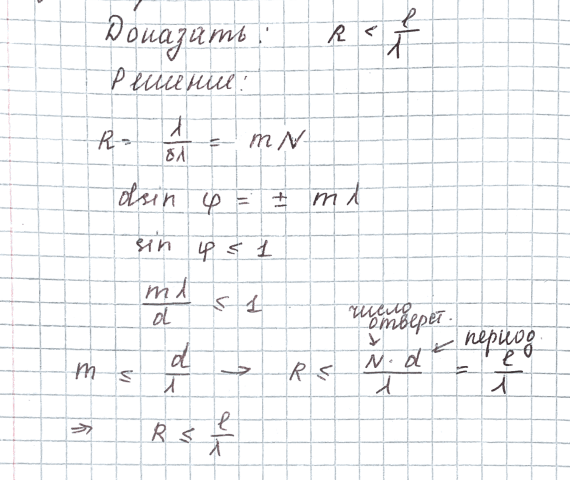 Доказать: R < l/λ
Решение:
R = λ/δλ = mN
dsin φ = ± mλ
sin φ ≤ 1
mλ/d ≤ 1
число
отверст.
период
m ≤ d/λ → R ≤ N·d/λ = l/λ
⇒ R ≤ l/λ